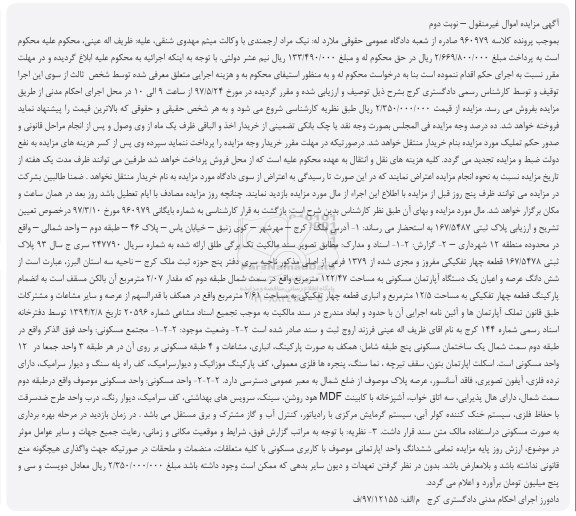 آگهی مزایده اموال غیرمنقول – نوبت دوم
بموجب پرونده کلاسه ۹۶۰۹۷۹ صادره از شعبه دادگاه عمومی حقوقی ملارد له: نیک مراد ارجمندی با وکالت میثم مهدوی شنقی، علیه: ظریف اله عینی، محکوم علیه محکوم
است به پرداخت مبلغ ۲/۶۶۹/۸۰۰/۰۰۰ ریال در حق محکوم له و مبلغ ۱۳۳/۴۹۰/۰۰۰ ریال نیم عشر دولتی. با توجه به اینکه اجرائیه به محکوم علیه ابلاغ گردیده و در مهلت
مقرر نسبت به اجرای حکم اقدام ننموده است بنا به درخواست محکوم له و به منظور استیفای محکوم به و هزینه اجرایی متعلق معرفی شده توسط شخص ثالث از سوی این اجرا
توقیف و توسط کارشناس رسمی دادگستری کرج بشرح ذیل توصیف و ارزیابی شده و مقرر گردیده در مورخ ۹۷/۵/۲۴ از ساعت ۹ الی ۱۰ در محل اجرای احکام مدنی از طریق
مزایده بفروش می رسد. مزایده از قیمت ۲/۳۵۰/۰۰۰/۰۰۰ ریال طبق نظریه کارشناسی شروع می شود و به هر شخص حقیقی و حقوقی که بالاترین قیمت را پیشنهاد نماید
فروخته خواهد شد. ده درصد وجه مزایده فی المجلس بصورت وجه نقد یا چک بانکی تضمینی از خریدار اخذ و الباقی ظرف یک ماه از وی وصول و پس از انجام مراحل قانونی و
صدور حکم تملیک مورد مزایده بنام خریدار منتقل خواهد شد. درصورتیکه در مهلت مقرر خریدار وجه مزایده را پرداخت ننماید سپرده وی پس از کسر هزینه های مزایده به نفع
دولت ضبط و مزایده تجدید می گردد. کلیه هزینه های نقل و انتقال به عهده محکوم علیه است که از محل فروش پرداخت خواهد شد طرفین می توانند ظرف مدت یک هفته از
تاریخ مزایده نسبت به نحوه انجام مزایده اعتراض نمایند که در این صورت تا رسیدگی به اعتراض از سوی دادگاه مورد مزایده به نام خریدار منتقل نخواهد . ضمنا طالبین بشرکت
در مزایده می توانند ظرف پنج روز قبل از مزایده با اطلاع این اجراء از مال مورد مزایده بازدید نمایند. چنانچه روز مزایده مصادف با ایام تعطیل باشد روز بعد در همان ساعت و
مکان برگزار خواهد شد. مال مورد مزایده و بهای آن طبق نظر کارشناس بدین شرح است: بازگشت به قرار کارشناسی به شماره بایگانی ۹۶۰۹۷۹ مورخ ۹۷/۳/۱۰ درخصوص تعیین
تشریح و ارزیابی پلاک ثبتی ۱۶۷/۵۴۸۷ به استحضار می رساند: ۱- آدرس ملک: کرج – مهرشهر – کوی زنبق – خیابان یاس – پلاک ۴۶ – طبقه دوم – واحد شمالی – واقع
در محدوده منطقه ۱۲ شهرداری – ۲- گزارش: ۲-۱- اسناد و مدارک: مطابق تصویر سند مالکیت تک برگی طلق ارائه شده به شماره سریال ۲۴۷۷۹۰ سری ج سال ۹۳ پلاک
ثبتی ۱۶۷/۵۴۷۸ قطعه چهار تفکیکی مفروز و مجزی شده از ۱۳۷۹ فرعی از اصلی مذکور ناحیه سری دفتر پنج حوزه ثبت ملک کرج – ناحیه سه استان البرز، عبارت است از
شش دانگ عرصه و اعیان یک دستگاه آپارتمان مسکونی به مساحت ۱۲۲/۴۷ مترمربع واقع در سمت شمال طبقه دوم که مقدار ۲/۰۷ مترمربع آن بالکن مسقف است به انضمام
پارکینگ قطعه چهار تفکیکی به مساحت ۱۲/۵ مترمربع و انباری قطعه چهار تفکیکی به مساحت ۲/۶۸ مترمربع واقع در همکف با قدرالسهم از عرصه و سایر مشاعات و مشترکات
طبق قانون تملک آپارتمان ها و آئین نامه اجرایی آن با حدود و ابعاد مندرج در سند مالکیت به موجب تجمیع اسناد مشاعی شماره ۲۰۵۹۶ تاریخ ۱۳۹۴/۲/۸ توسط دفترخانه
اسناد رسمی شماره ۱۴۴ کرج به نام اقای ظریف اله عینی فرزند اروج ثبت و سند صادر شده است ۲-۲- وضعیت موجود: ۲-۲-۱- مجتمع مسکونی: واحد فوق الذکر واقع در
طبقه دوم سمت شمال یک ساختمان مسکونی پنج طبقه شامل: همکف به صورت پارکینگ، انباری، مشاعات و ۴ طبقه مسکونی بر روی آن در هر طبقه ۳ واحد جمعا در ۱۲
واحد مسکونی است. اسکلت اپارتمان بتون، سقف تیرچه ، نما سنگ، پنجره ها فلزی معمولی، کف پارکینگ موزائیک و دیوارسرامیک، کف راه پله سنگ و دیوار سرامیک، دارای
نرده فلزی، آیفون تصویری، فاقد آسانسور، عرصه پلاک موصوف از ضلع شمال به معبر عمومی دسترسی دارد. ۲-۲-۲- واحد مسکونی: واحد مسکونی موصوف واقع درطبقه دوم
سمت شمال، دارای هال پذیرایی، سه اتاق خواب، آشپزخانه با کابینت MDF هود روشن، سینک، سرویس های بهداشتی، کف سرامیک، دیوار رنگ، درب واحد طرح ضدسرقت
با حفاظ فلزی، سیستم خنک کننده کولر آبی، سیستم گرمایش مرکزی با رادیاتور، کنترل آب و گاز مشترک و برق مستقل می باشد . در زمان بازدید در مرحله بهره برداری
به صورت مسکونی دراستفاده مالک متن سند قرار داشت. ۳- نظریه: با توجه به مراتب گزارش فوق، شرایط و موقعیت مکانی و زمانی، رعایت جمیع جهات و سایر عوامل موثر
در موضوع، ارزش روز پایه مزایده تمامی ششدانگ واحد اپارتمانی موصوف با کاربری مسکونی با کلیه متعلقات، منضمات و ملحقات در صورتیکه جهت واگذاری هیچگونه منع
قانونی نداشته باشد و بلامعارض باشد. بدون در نظر گرفتن تعهدات و دیون سایر بدهی که ممکن است وجود داشته باشد مبلغ ۲/۳۵۰/۰۰۰/۰۰۰ ریال معادل دویست و سی و
پنج میلیون تومان برآورد و اعلام می گردد.
دادورز اجرای احکام مدنی دادگستری کرج م/الف: ۹۷/۱۲۱۵۵/ف